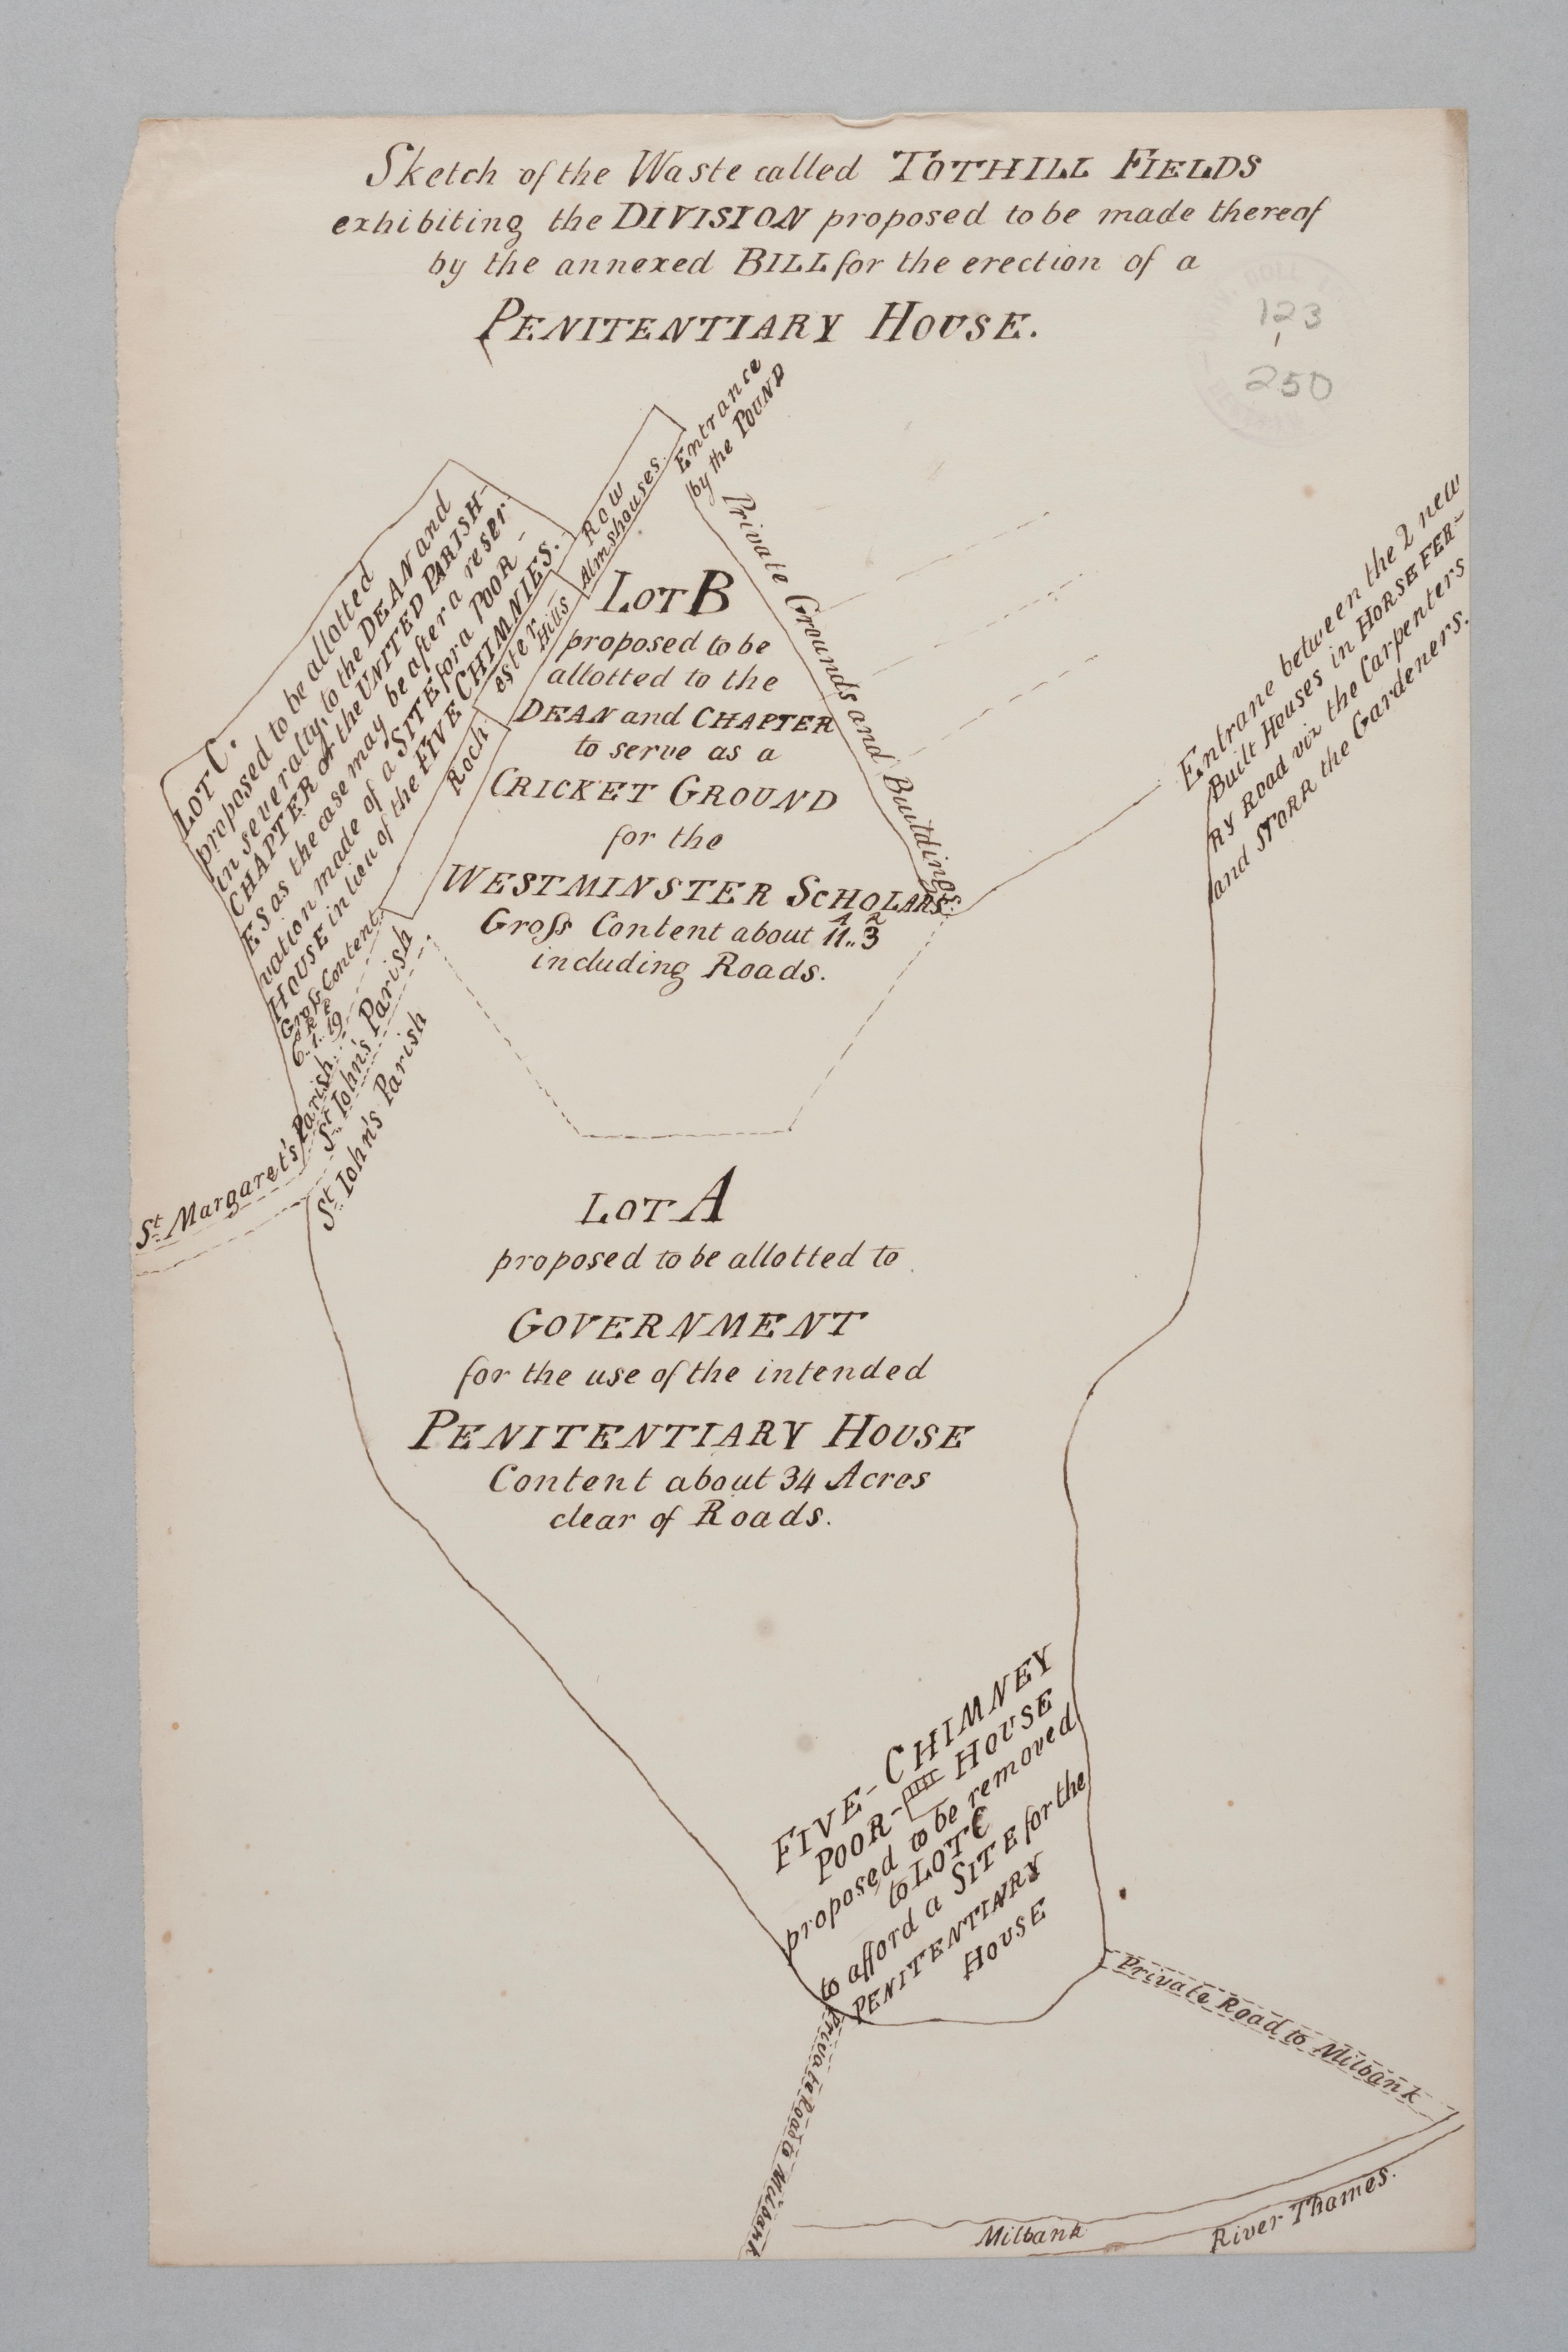 Sketch of the Waste called TOTHILL FIELDS
exhibiting the DIVISION proposed to be made thereof
by the annexed BILL for the erection of a
PENITENTIARY HOUSE.
123
250
Entrance
by the POUND
Row
Almshouses.
Private Grounds and Buildings
LOT C.
proposed to be allotted
in severalty, to the DEAN and
CHAPTER or the UNITED PARISH-
ES as the case may be after a reser-
vation made of a SITE for a POOR-
HOUSE in lieu of the FIVE CHIMNIES.
Gross Content
A R P
6..1..19
Roch
ester
Hills
LOT B
proposed to be
allotted to the
DEAN and CHAPTER
to serve as a
CRICKET GROUND
for the
WESTMINSTER SCHOLARS:
Groſs Content about 11..3
including Roads.
Entrane between the 2 new
Built Houses in HORSEFER-
RY ROAD viz the Carpenters
and STORR the Gardeners.
St. Margaret's Parish
St. Iohn's Parish
St. Iohn's Parish
LOT A
proposed to be allotted to
GOVERNMENT
for the use of the intended
PENITENTIARY HOUSE
Content about 34 Acres
clear of Roads.
FIVE-CHIMNEY
POOR-HOUSE
proposed to be removed
to LOT C
to afford a SITE for the
PENITENTIARY
HOUSE
Private Road to Milbank
Private Road to Milbank
Milbank
River Thames.